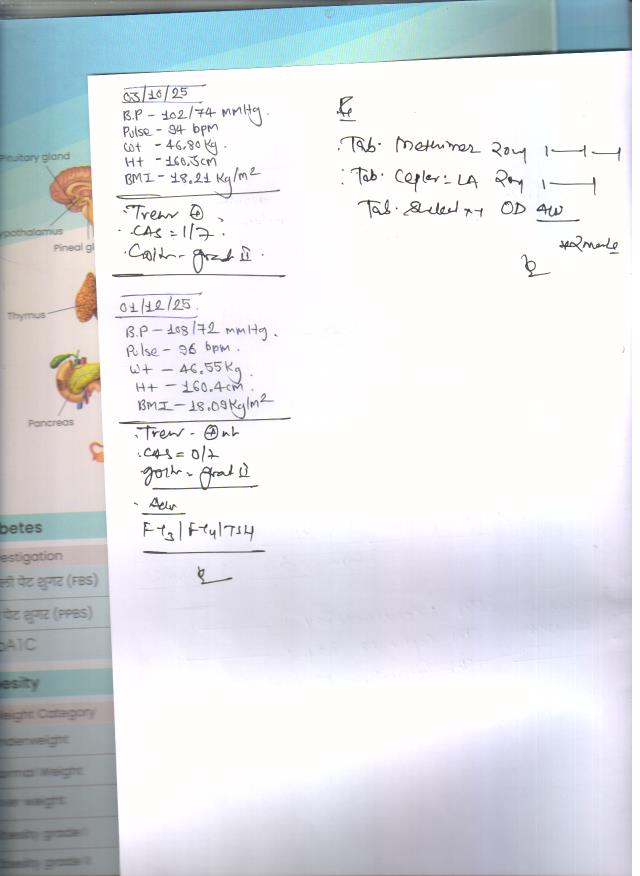 03/10/25
B.P - 102/74 mmHg.
Pulse - 94 bpm
Wt - 46.80 Kg.
Ht - 160.3cm
BMI - 18.21 Kg/m2
Tremr ⊕
CAS = 1/7.
grad II.
01/12/25.
B.P - 108/72 mmHg.
Pulse - 96 bpm.
Wt - 46.55Kg.
Ht - 160.4cm.
BMI - 18.09Kg/m2
Tremr - ⊕nt
CAS = 0/7
goitr - grad II
Adv
FT3/FT4/TSH
Tab. 20mg 1—1—1
Tab. LA 20mg 1——1
Tab. OD
Pituitary gland
ypothalamus
Pineal gl
Thymus
Pancreas
betes
estigation
ली पेट शुगर (FBS)
पेट शुगर (PPBS)
bA1C
esity
eight Category
nderweight
ormal Weight
ver weight
besity grade I
besity grade II